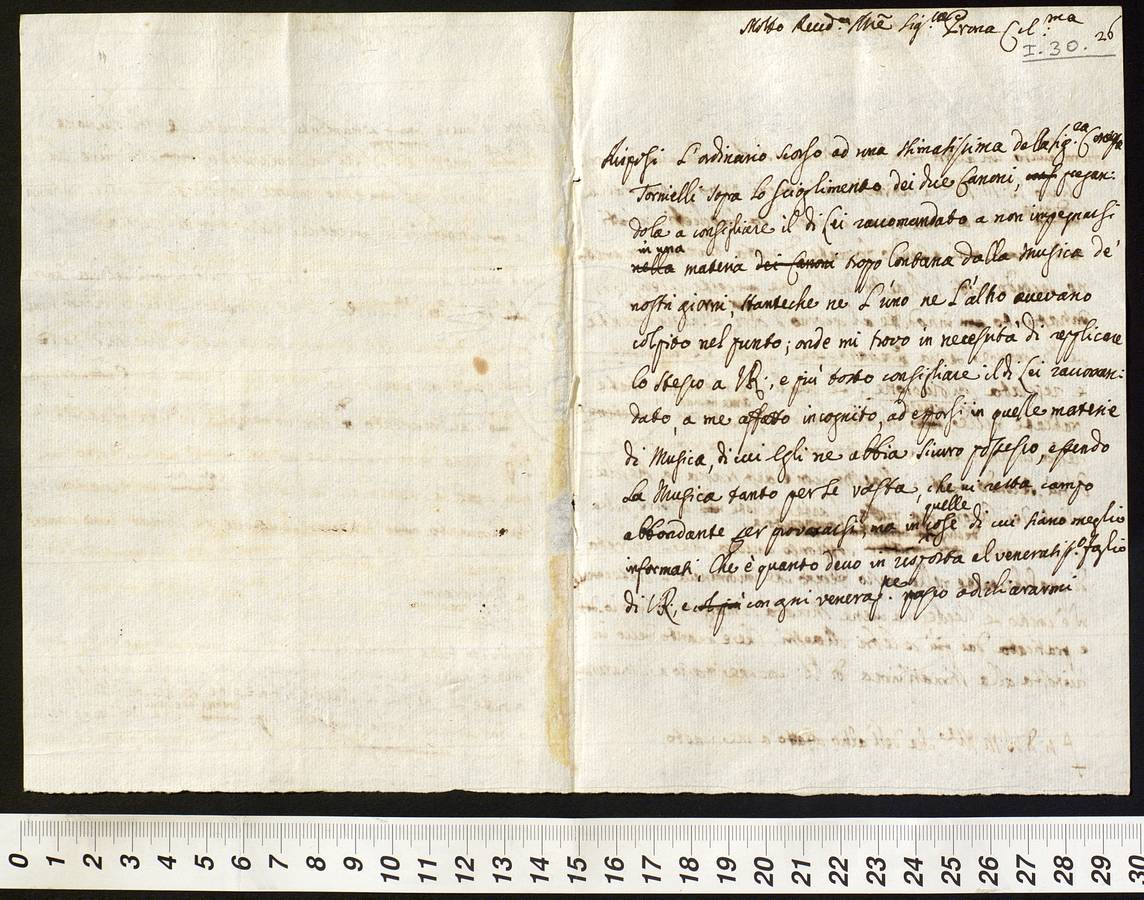 Molto Revd.ª Ill.ē Sig.ra Prona Col.ma
I. 30. 26
Risposi l'ordinario scorso ad una stimatissima della Sig.ra
Tornielli sopra lo scioglimento dei due Canoni, pregan:
dola a consigliare il di Lei raccomandato a non impegnarsi
in una
nella materia dei Canoni tropo lontana dalla Musica de'
nostri giorni, stanteche ne l'uno ne l'altro avevano
colpito nel punto; onde mi trovo in necessità di replicare
lo stesso a V.R., e più tosto consigliare il di Lei raccoman:
dato, a me affatto incognito, ad esporsi in quelle materie
di Musica, di cui Egli ne abbia sicuro possesso, essendo
la Musica tanto per se vasta, che vi resta campo
quelle
abbondante per provarsi, ma in cose di cui siano meglio
informati. Che è quanto devo in risposta al veneratiss.º foglio
di V.R., e con ogni veneraz.ne passo a dichiararmi
0 1 2 3 4 5 6 7 8 9 10 11 12 13 14 15 16 17 18 19 20 21 22 23 24 25 26 27 28 29 30